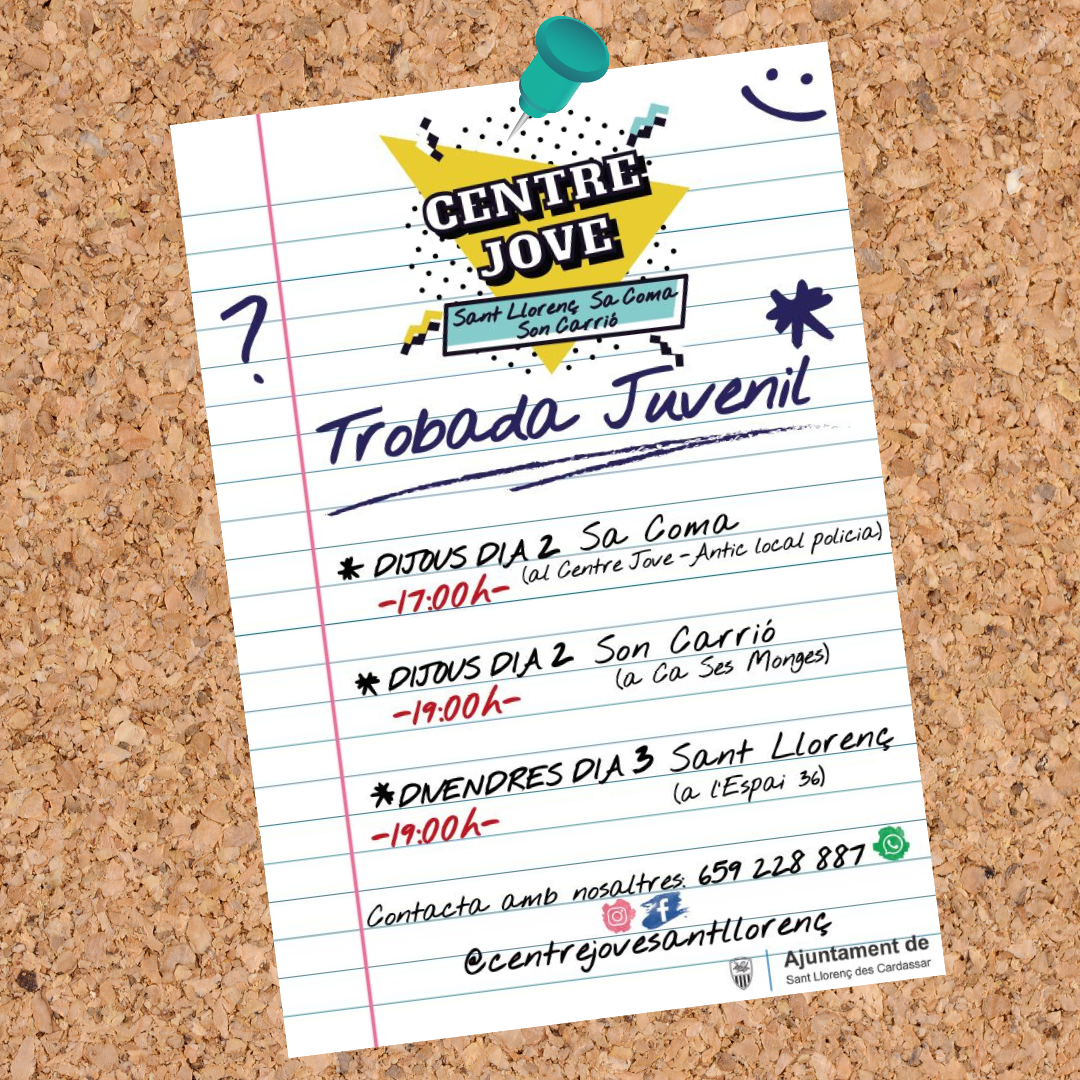 CENTRE
JOVE
Sant Llorenç Sa Coma
Son Carrió
?
*
Trobada Juvenil
* DIJOUS DIA 2 Sa Coma
-17:00h- (al Centre Jove - Antic local policia)
* DIJOUS DIA 2 Son Carrió
-19:00h- (a Ca Ses Monges)
* DIVENDRES DIA 3 Sant Llorenç
-19:00h- (a l'Espai 36)
Contacta amb nosaltres: 659 228 887
@centrejovesantllorenç
Ajuntament de
Sant Llorenç des Cardassar